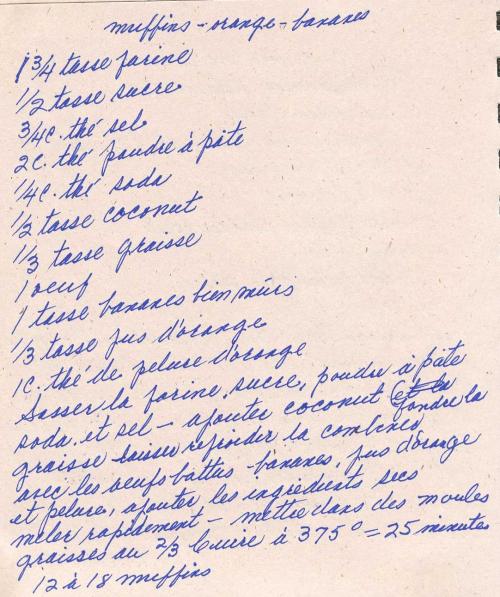 muffins - orange - bananes
1 3/4 tasse farine
1/2 tasse sucre
3/4 c. thé sel
2 c. thé poudre à pâte
1/4 c. thé soda
1/2 tasse coconut
1/3 tasse graisse
1 oeuf
1 tasse bananes bien mûrs
1/3 tasse jus d'orange
1 c. thé de pelure d'orange
Sasser la farine, sucre, poudre à pâte
soda et sel - ajouter coconut fondre la
graisse laisser refroidir la combiner
avec les oeufs battus - bananes, jus d'orange
et pelures, ajouter les ingrédients secs
mêler rapidement - mettre dans des moules
graissés au 2/3 Cuire à 375° = 25 minutes
12 à 18 muffins